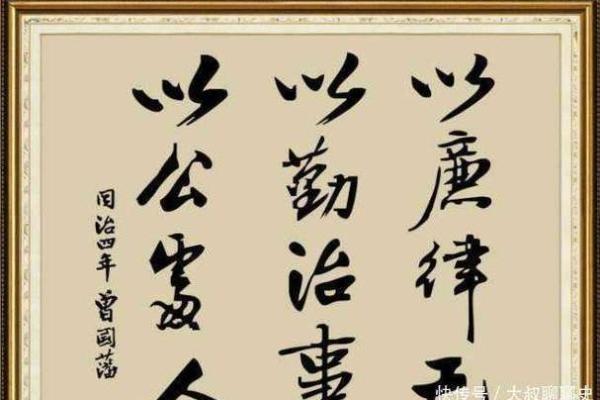 以廉律
以勤治事
以公處人
同治四年 曾國藩
快传号/大叔聊历史